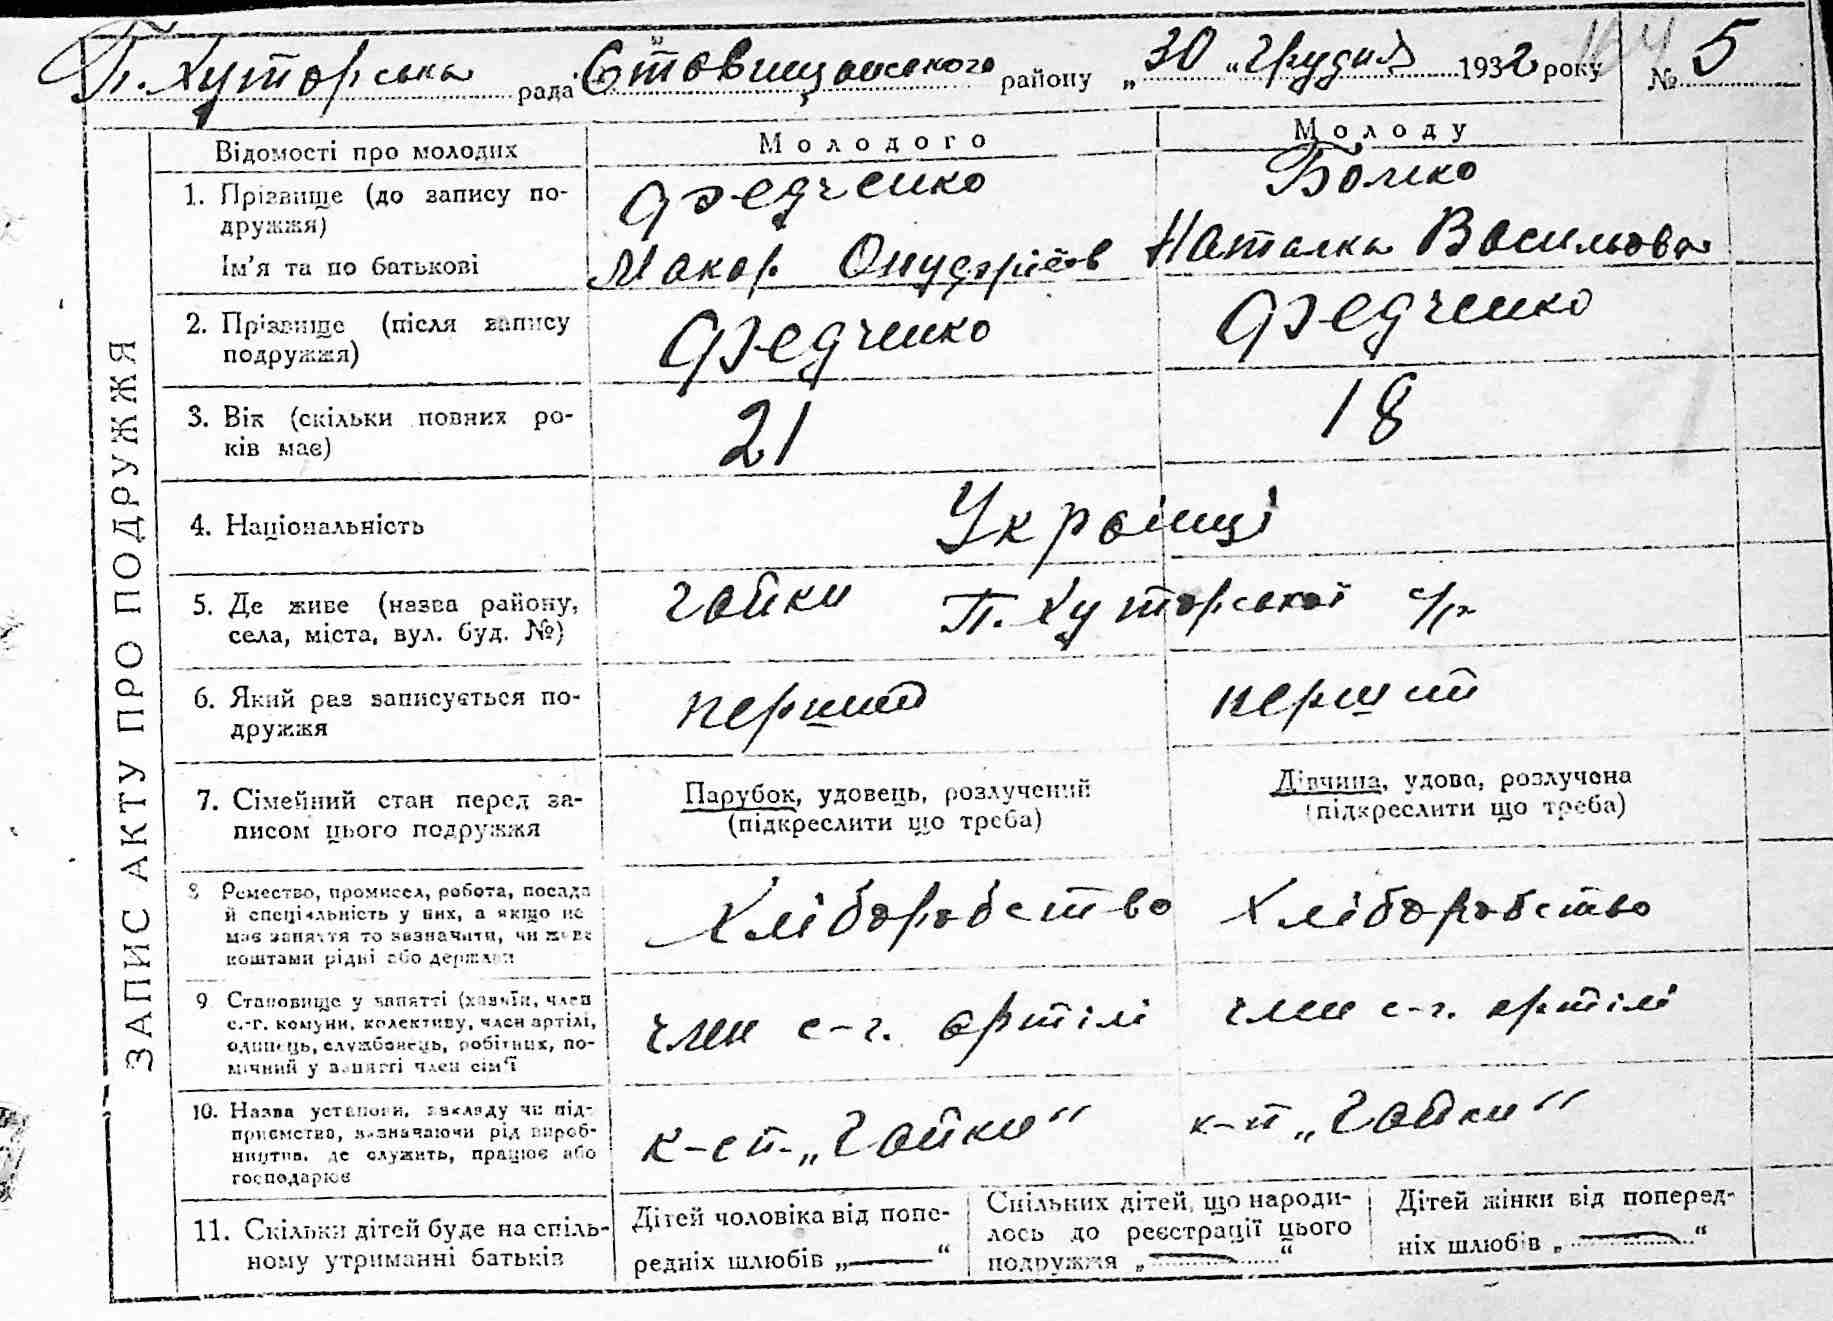 П. Хуторська рада Ставищанського району „30“ грудня 1932 року № 5
ЗАПИС АКТУ ПРО ПОДРУЖЖЯ
Відомості про молодих
Молодого
Молоду
1. Прізвище (до запису по-
дружжя)
Федченко
Бойко
Ім'я та по батькові
Макар Онуфріїв
Наталка Васильова
2. Прізвище (після запису
подружжя)
Федченко
Федченко
3. Вік (скільки повних ро-
ків має)
21
18
4. Національність
Українці
5. Де живе (назва району,
села, міста, вул. буд. №)
Гайки П. Хуторської с/р
6. Який раз записується по-
дружжя
перший
перший
7. Сімейний стан перед за-
писом цього подружжя
Парубок, удовець, розлучений
(підкреслити що треба)
Дівчина, удова, розлучена
(підкреслити що треба)
8 Ремество, промисел, робота, посада
й спеціяльність у них, а якщо не
має заняття то зазначити, чи живе
коштами рідні або держави
Хліборобство
Хліборобство
9 Становище у занятті (хазяїн, член
с.-г. комуни, колективу, член артілі,
одинець, службовець, робітник, по-
мічний у занятті член сім'ї
член с-г. артілі
член с-г. артілі
10. Назва установи, закладу чи під-
приємства, зазначаючи рід вироб-
ництва, де служить, працює або
господарює
к-сп- „Гайки“
к-п „Гайки“
11. Скільки дітей буде на спіль-
ному утриманні батьків
Дітей чоловіка від попе-
редніх шлюбів „—“
Спільних дітей, що народи-
лось до реєстрації цього
подружжя „—“
Дітей жінки від поперед-
ніх шлюбів „—“